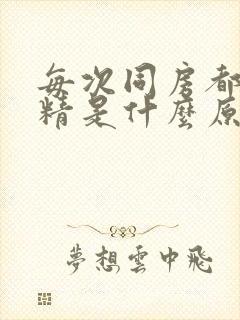 每次同房都
精是什麼原
夢想雲中飛